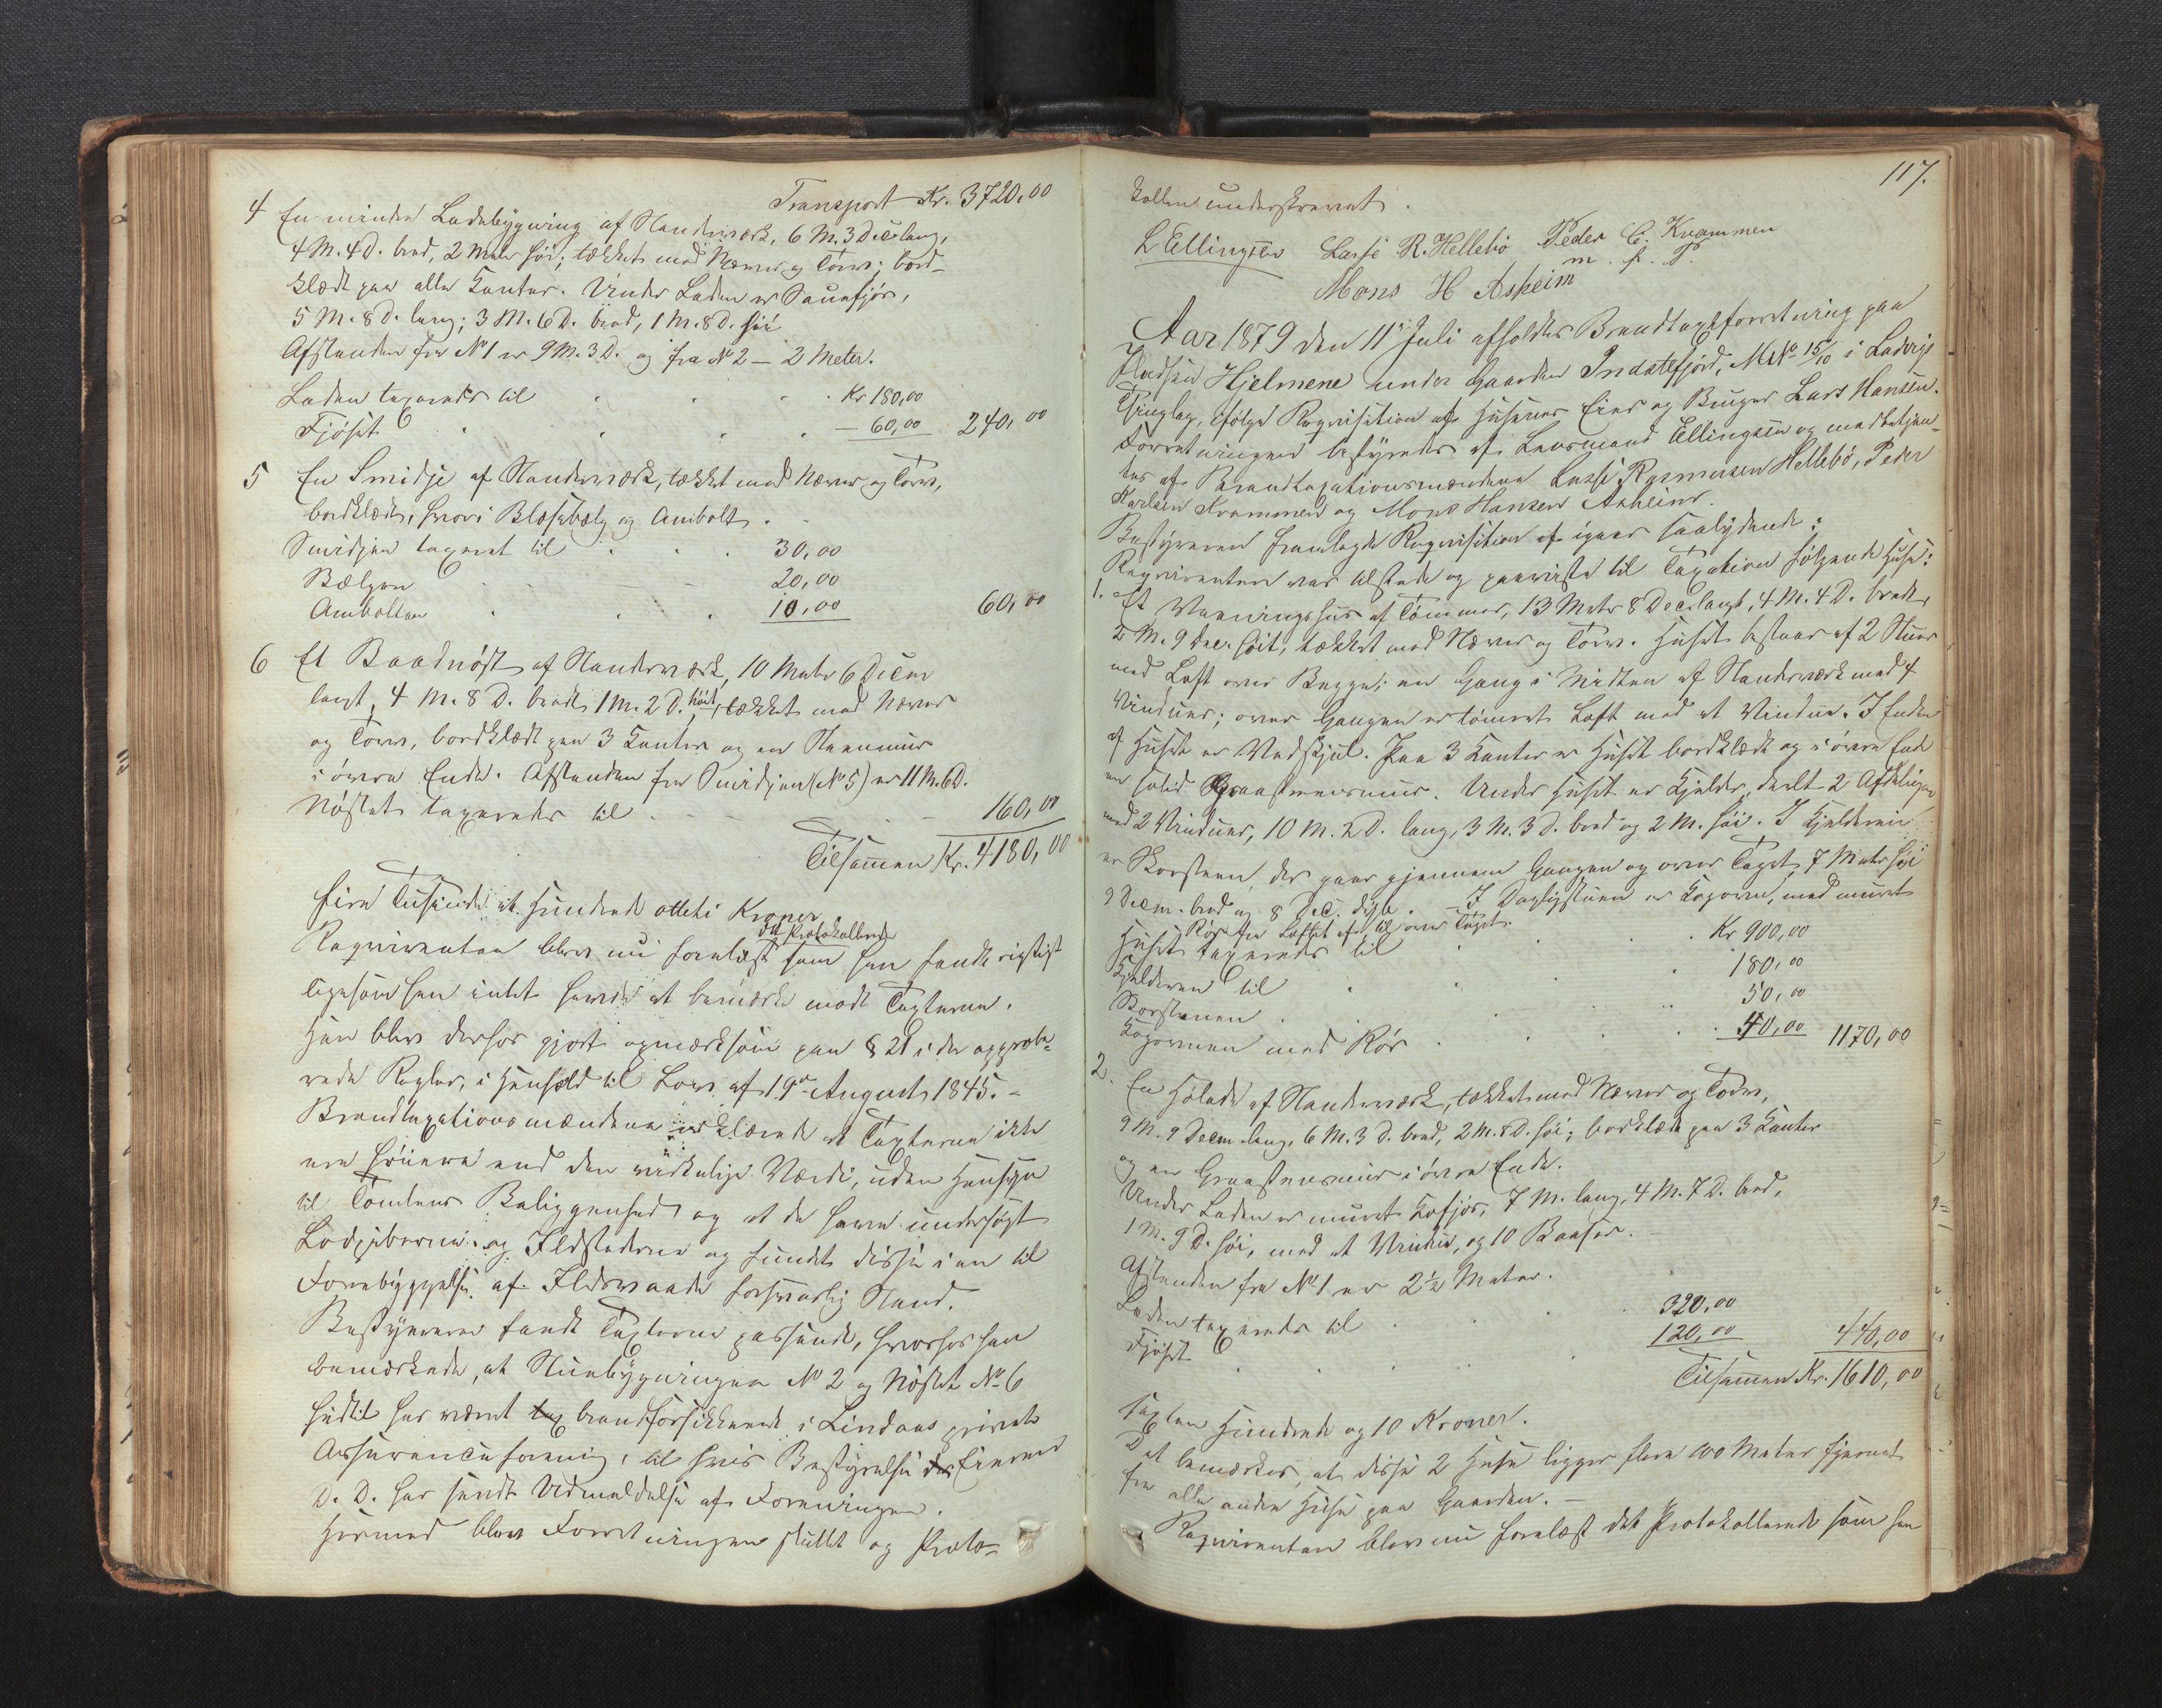 Transport Kr. 3720,00
4 En mindre Ladebygning af Standerværk, 6 M. 3 Decr lang,
4 M. 4 D. bred, 2 Meter høi; tækket med Næver og Törv; bord-
klædt paa alle Kanter. Under Laden er Sauefjös,
5 M. 8 D. lang; 3 M. 6 D. bred, 1 M. 8 D. høi
Afstanden fra No 1 er 9 M. 3 D. og fra No 2 – 2 Meter.
Laden taxeredes til . . . Kr 180,00
Fjöset . . . . – 60,00 240,00
5 En Smidje af Standerværk, tækket med Næver og Törv,
bordklædt, hvori Blæsebælg og Ambolt.
Smidjen taxeret til . . . 30,00
Bælgen . . . 20,00
Ambolten . . . 10,00 60,00
6 Et Baadnöst af Standerværk, 10 Meter 6 Decm
langt, 4 M. 8 D. bredt, 1 M. 2 D. höit, tækket med Næver
og Törv, bordklædt paa 3 Kanter og en Steenmur
i övere Ende. Afstanden fra Smidjen (No 5) er 11 M. 6 D.
Nöstet taxeredes til . . . 160,00
Tilsammen Kr. 4180,00
fire Tusinde et Hundrede otteti Kroner.
det Protokollerede
Requirenten blev nu forelæst som han fandt rigtigt
ligesom han intet havde at bemærke mod Taxterne.
Han blev derhos gjort opmærksom paa § 21 i de approbe-
rede Regler, i Henhold til Lov af 19de August 1845. –
Brandtaxationsmændene erklærede at Taxterne ikke
ere höiere end den virkelige Værdi, uden Hensyn
til Tomtens Beliggenhed og at de have undersögt
Lodpiberne og Ildstederne og fundet disse i en til
Forebyggelse af Ildsvaade forsvarlig Stand.
Bestyreren fandt Taxterne passende, hvorhos han
bemærkede, at Stuebygningen No 2 og Nöstet No 6
hidtil har været brandforsikkrede i Lindaas private
Assuranceforening, til hvis Bestyrelse Eieren
D. D. har sendt Udmeldelse af Foreningen.
Hermed blev Forretningen sluttet og Proto-
117.
kollen underskrevet.
L Ellingsen Lasse R. Hellebö Peder C. Kvammen
m. f. P.
Mons H Asheim
Aar 1879 den 11te Juli afholdtes Brandtaxtforretning paa
Pladsen Hjelmene under Gaarden Indatefjord, MNo 15/10 i Ladvigs
Thinglag, ifölge Requisition af Husenes Eier og Bruger Lars Hansen.
Forretningen bestyredes af Lensmand Ellingsen og medbetjen-
tes af Brandtaxationsmændene Lasse Rasmussen Hellebö, Peder
Karlsen Kvammen og Mons Hansen Asheim.
Bestyreren fremlagde Requisition af igaar saalydende:
Requirenten var tilstede og paaviste til Taxation fölgende Huse:
1. Et Vaaningshus af Tömmer, 13 Meter 8 Dec. langt, 4 M. 4 D. bredt,
2 M. 9 Dec. höit, tækket med Næver og Törv. Huset bestaar af 2 Stuer
med Loft over Begge; en Gang i Midten af Standerværk med 4
Vinduer; over Gangen er tömret Loft med et Vindue. I Enden
af Huset er Vedskjul. Paa 3 Kanter er Huset bordklædt og i övre Ende
en solid Graasteensmur. Under Huset er Kjelder, deelt 2 Afdelinger
med 2 Vinduer, 10 M. 2 D. lang, 3 M. 3 D. bred og 2 M. höi. I Kjelderen
er Skorsteen, der gaar gjennem Gangen og over Taget, 7 Meter höi
9 Decm. bred og 8 Dec. dyb. – I Dagligstuen er Kogeovn, med muret
Rör fra Loftet af til over Taget.
Huset taxeredes til . . . Kr 900,00
Kjelderen til . . . 180,00
Skorstenen . . . 50,00
Kogeovnen med Rör . . . 40,00 1170,00
2. En Hölade af Standerværk, tækket med Næver og Törv,
9 M. 9 Decm lang, 6 M. 3 D. bred, 2 M. 8 D. höi; bordklædt paa 3 Kanter
og en Graasteensmur i övre Ende.
Under Laden er muret Kofjös, 7 M. lang, 4 M. 7 D. bred,
1 M. 9 D. höi, med et Vindue, og 10 Baaser.
Afstanden fra No 1 er 2 1/2 Meter.
Laden taxeredes til . . . 320,00
Fjöset . . . 120,00 440,00
Tilsammen Kr. 1610,00
sexten Hundrede og 10 Kroner.
Det bemærkes, at disse 2 Huse ligger flere 100 Meter fjernet
fra alle andre Huse paa Gaarden. –
Requirenten blev nu forelæst det Protokollerede som han